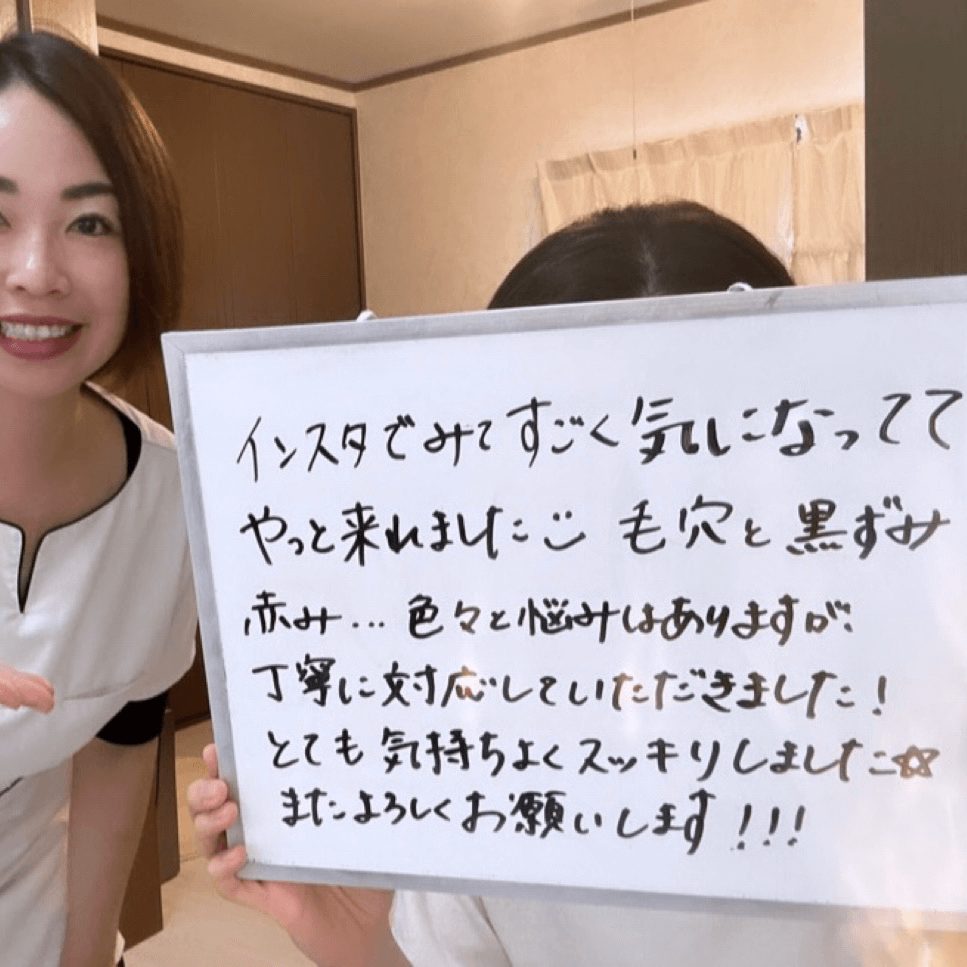 インスタでみてすごく気になってて
やっと来れました 毛穴と黒ずみ
赤み...色々と悩みはありますが、
丁寧に対応していただきました!
とても気持ちよくスッキリしました☆
またよろしくお願いします!!!